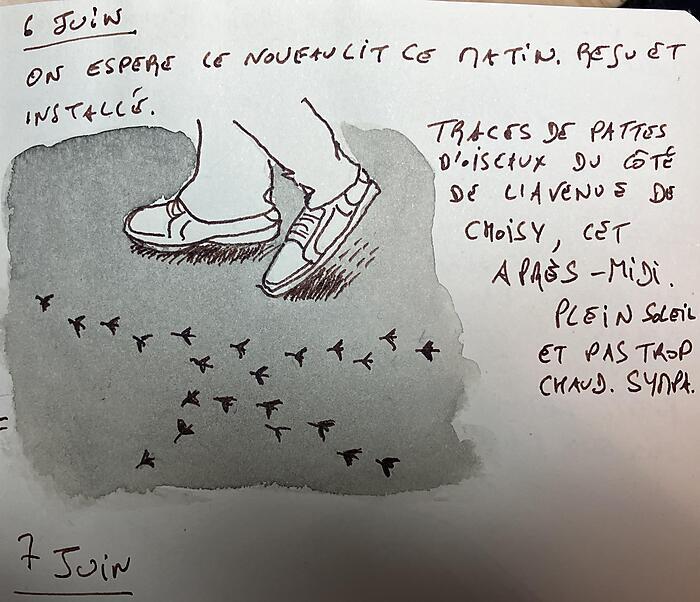 6 JUIN
ON ESPERE LE NOUVEAU LIT CE MATIN. REÇU ET
INSTALLÉ.
TRACES DE PATTES
D'OISEAUX DU CÔTÉ
DE L'AVENUE DE
CHOISY, CET
APRÈS-MIDI.
PLEIN SOLEIL
ET PAS TROP
CHAUD. SYMPA.
7 JUIN